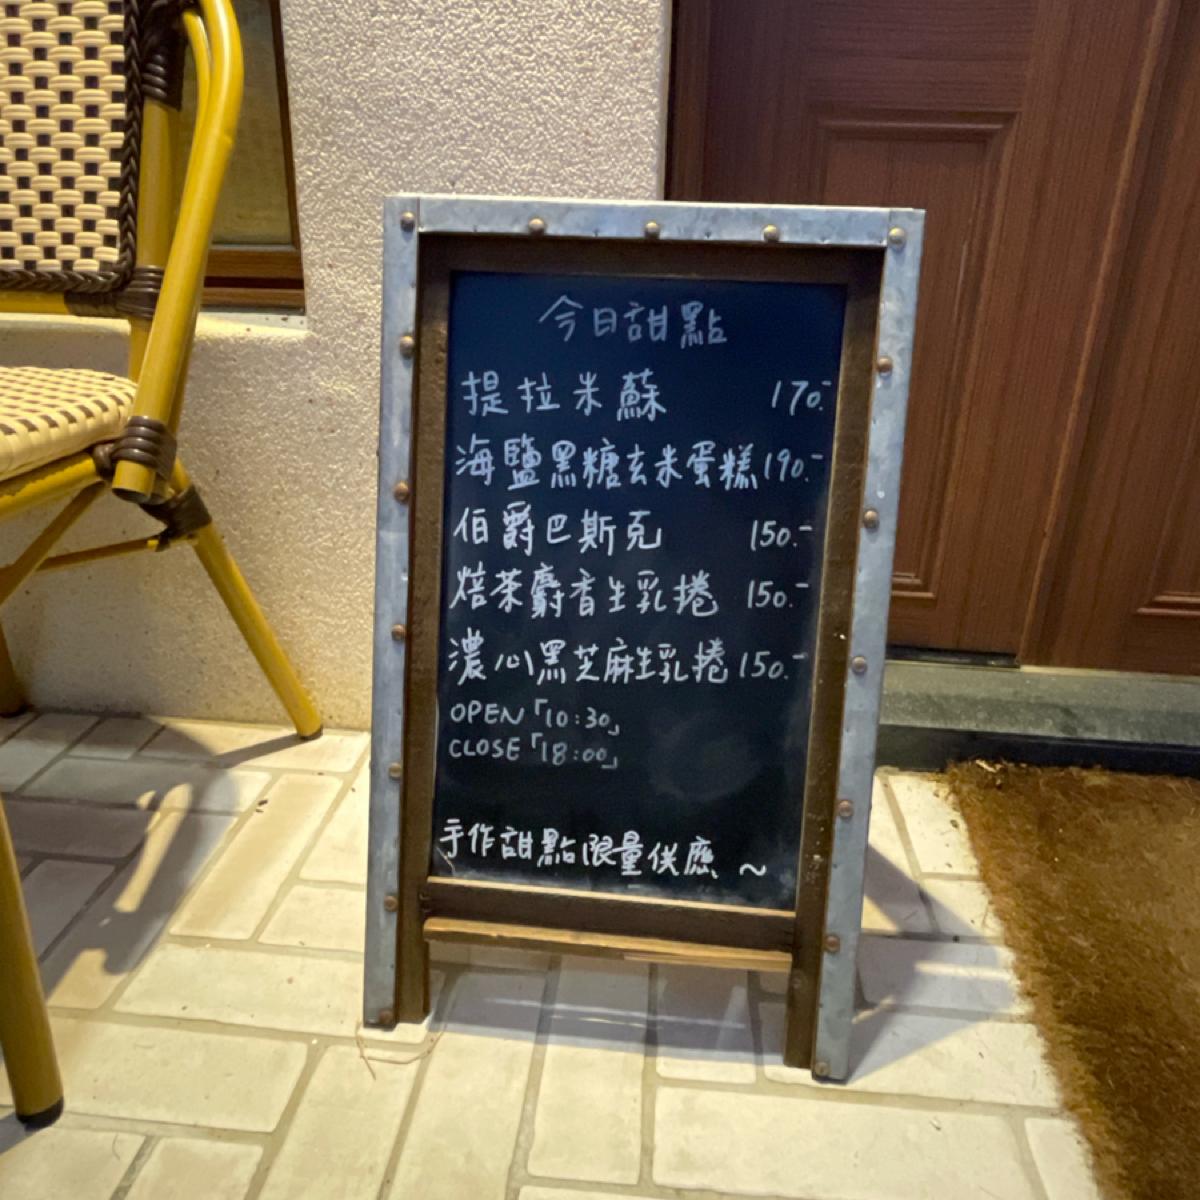 今日甜點
提拉米蘇 170.-
海鹽黑糖玄米蛋糕 190.-
伯爵巴斯克 150.-
焙茶麝香生乳捲 150.-
濃心黑芝麻生乳捲 150.-
OPEN「10:30」
CLOSE「18:00」
手作甜點限量供應 ~